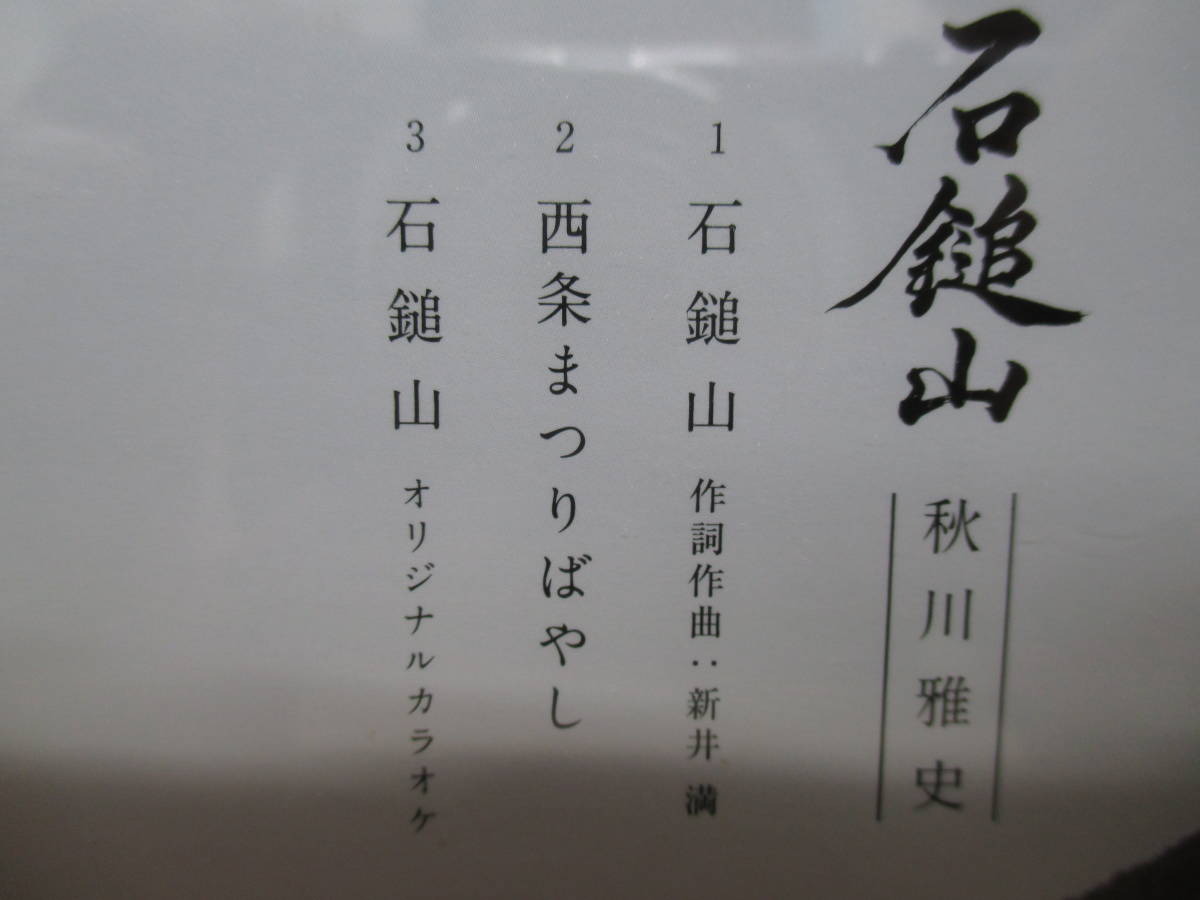 石鎚山
秋川雅史
1 石鎚山 作詞作曲:新井 満
2 西条まつりばやし
3 石鎚山 オリジナルカラオケ